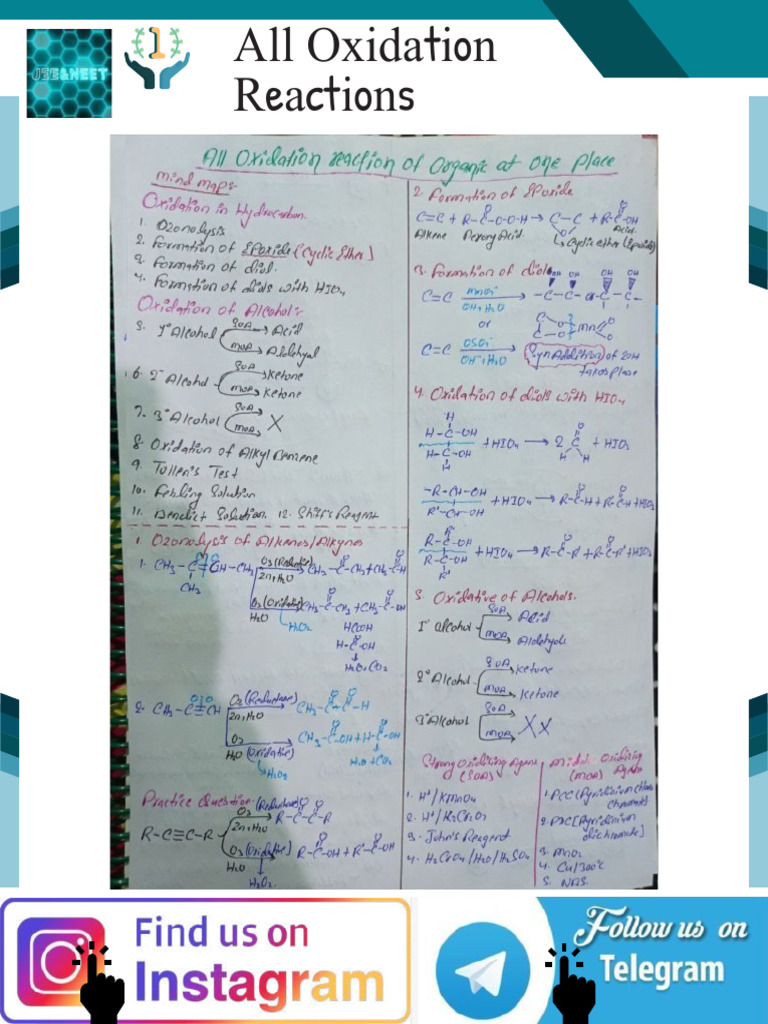 JEE&NEET
1
All Oxidation
Reactions
All Oxidation reaction of Organic at one Place
Mind Maps:
Oxidation in Hydrocarbon.
1. Ozonolysis
2. Formation of Epoxide (Cyclic Ether)
3. Formation of diol.
4. Formation of diols with HIO4
Oxidation of Alcohols
5. 1° Alcohol
SOA → Acid
MOA → Aldehyde
6. 2° Alcohol
SOA → Ketone
MOA → Ketone
7. 3° Alcohol
SOA
MOA
X
8. Oxidation of Alkyl Benzene
9. Tollen's Test
10. Fehling Solution
11. Benedict Solution 12. Shiff's Reagent
1. Ozonolysis of Alkenes/Alkynes
O3 (Reductive)
Zn, H2O
H2O
H2O2
HCOOH
H2O + CO2
O3 (Reductive)
Zn, H2O
O3
H2O (Oxidative)
H2O + CO2
Practice Question:
(Reductive)
R-C≡C-R
O3
Zn, H2O
O3 (Oxidative)
H2O
H2O2
2. Formation of Epoxide
Alkene Peroxy Acid
Acid
Cyclic ether (Epoxide)
3. Formation of diols
C=C
OH, H2O
or
C=C
OH, H2O
Syn Addition of 2OH
takes place
4. Oxidation of diols with HIO4
+ HIO4 →
+ HIO3
+ HIO4 →
+ HIO3
+ HIO4 →
+ HIO3
5. Oxidative of Alcohols.
1° alcohol
SOA → Acid
MOA → Aldehyde
2° Alcohol
SOA → Ketone
MOA → Ketone
3° Alcohol
SOA
MOA
XX
Strong Oxidizing Agent
(SOA)
1. H+/KMnO4
2. H+/K2Cr2O7
3. John's Reagent
4. H2CrO4/H2O/H2SO4
Oxidizing
(MOA) Agents
1. PCC (Pyridinium chloro
chromate)
2. PDC [Pyridinium
dichromate]
3. MnO2
4. Cu/300°C
5. NBS.
Find us on
Instagram
Follow us on
Telegram